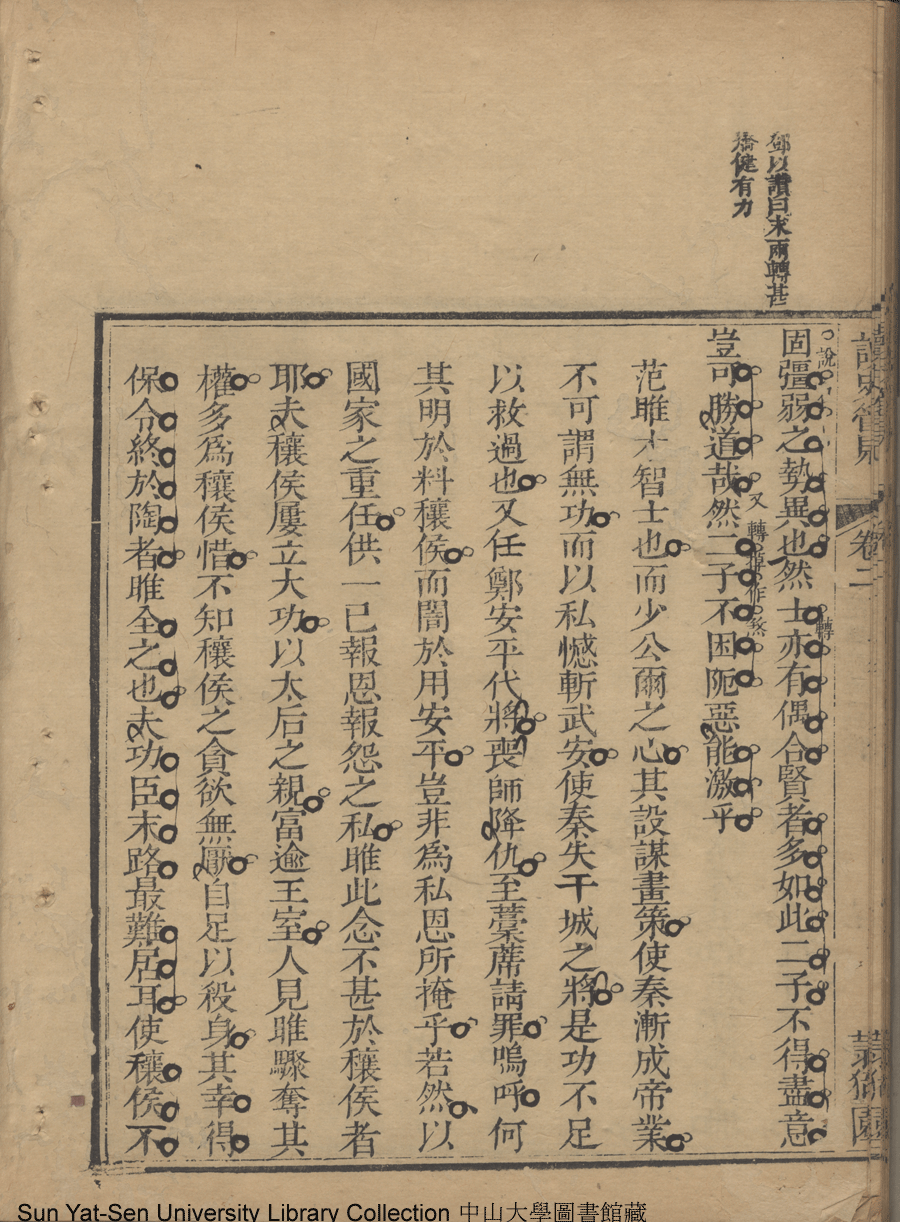 鄧以讚曰末兩轉甚
矯健有力
讀史管見
卷二
說
轉
固彊弱之勢異也然士亦有偶合賢者多如此二子不得盡意
又轉掉作煞
豈可勝道哉然二子不困阨惡能激乎
范雎才智士也而少公爾之心其設謀畫策使秦漸成帝業
不可謂無功而以私憾斬武安使秦失干城之將是功不足
以救過也又任鄭安平代將喪師降仇至藁蓆請罪嗚呼何
其明於料穰侯而闇於用安平豈非為私恩所掩乎若然以
國家之重任供一已報恩報怨之私雎此念不甚於穰侯者
耶夫穰侯屢立大功以太后之親富逾王室人見雎驟奪其
權多為穰侯惜不知穰侯之貪欲無厭自足以殺身其幸得
保令終於陶者雎全之也夫功臣末路最難居耳使穰侯不
Sun Yat-Sen University Library Collection 中山大學圖書館藏